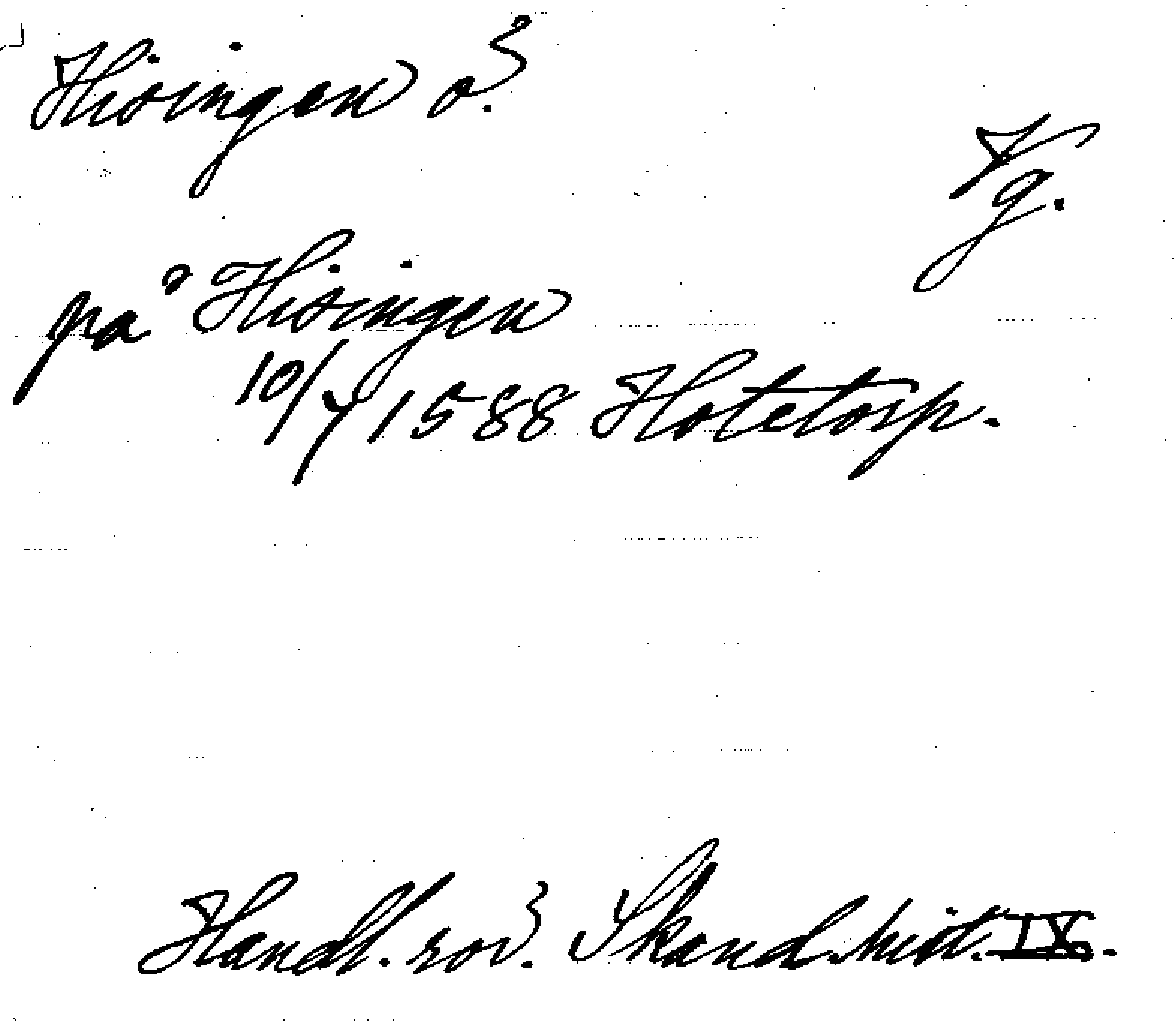 Hisingen ö.
Vg.
på Hisingen
10/7 1588 Hotetorp.
Handl. rör. Skand. hist. IX.